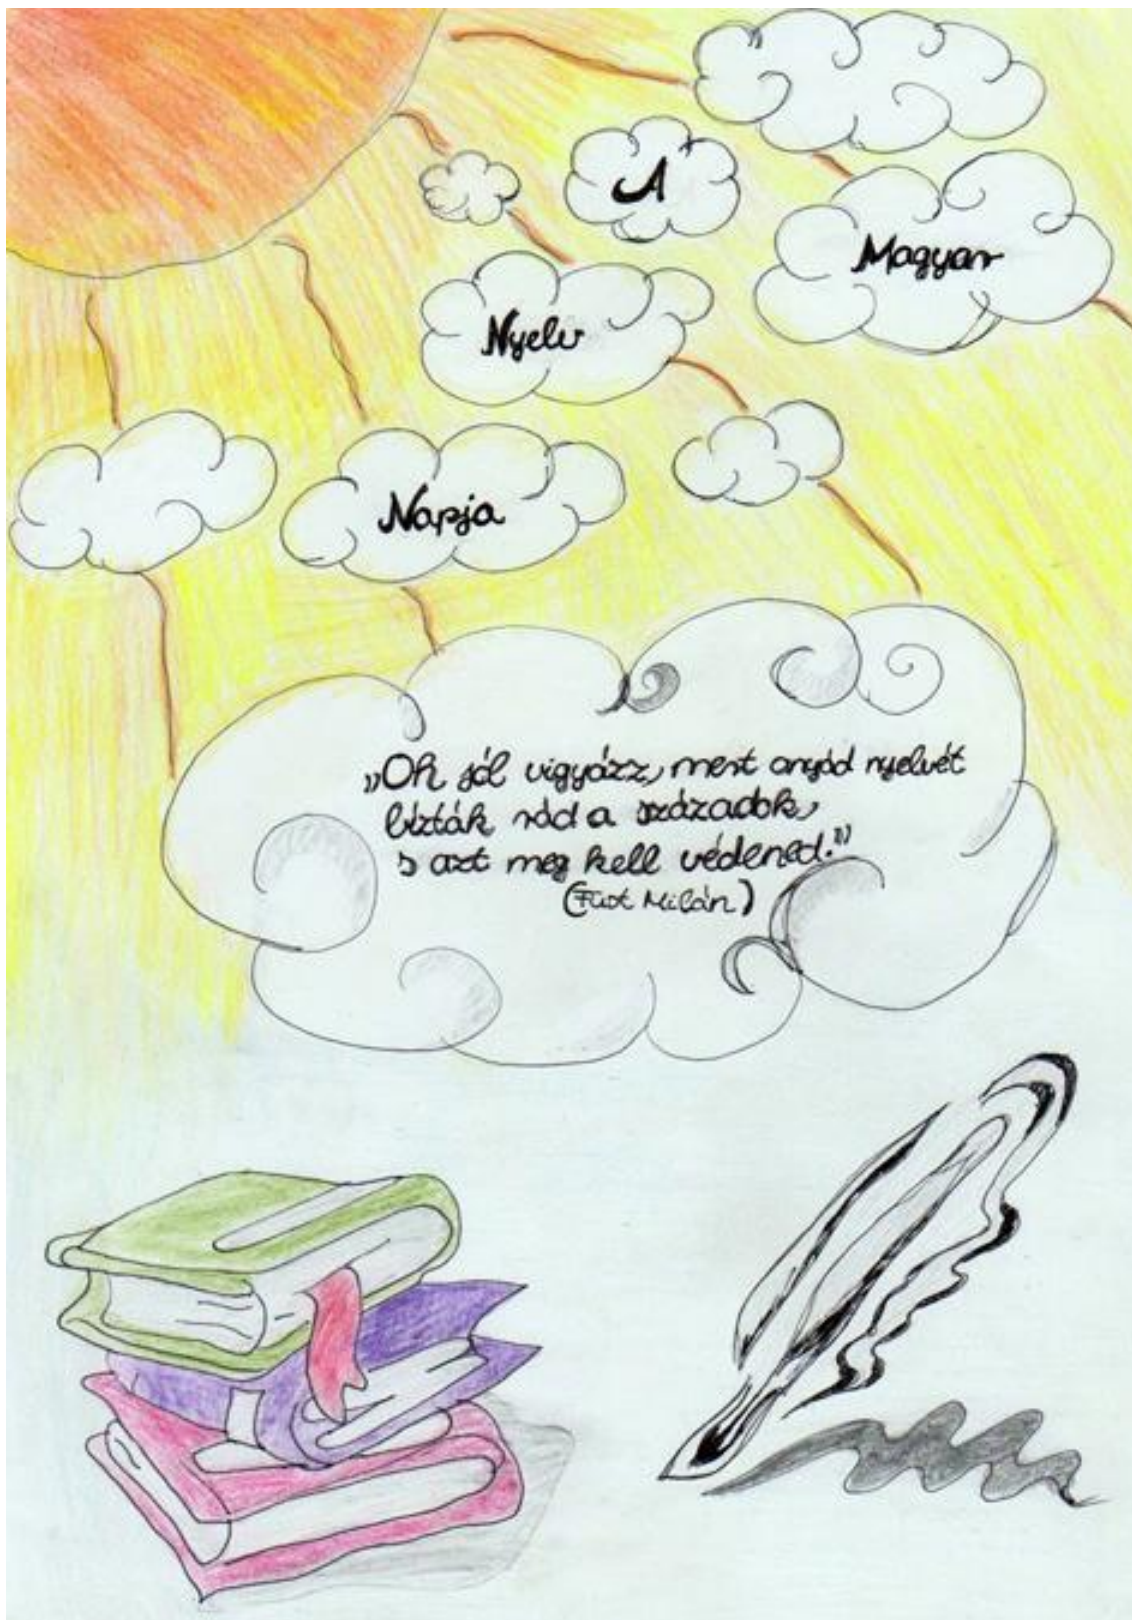 A
Magyar
Nyelv
Napja
„Oh jól vigyázz, mert anyád nyelvét
bízták rád a századok,
s azt meg kell védened."
(Füst Milán)